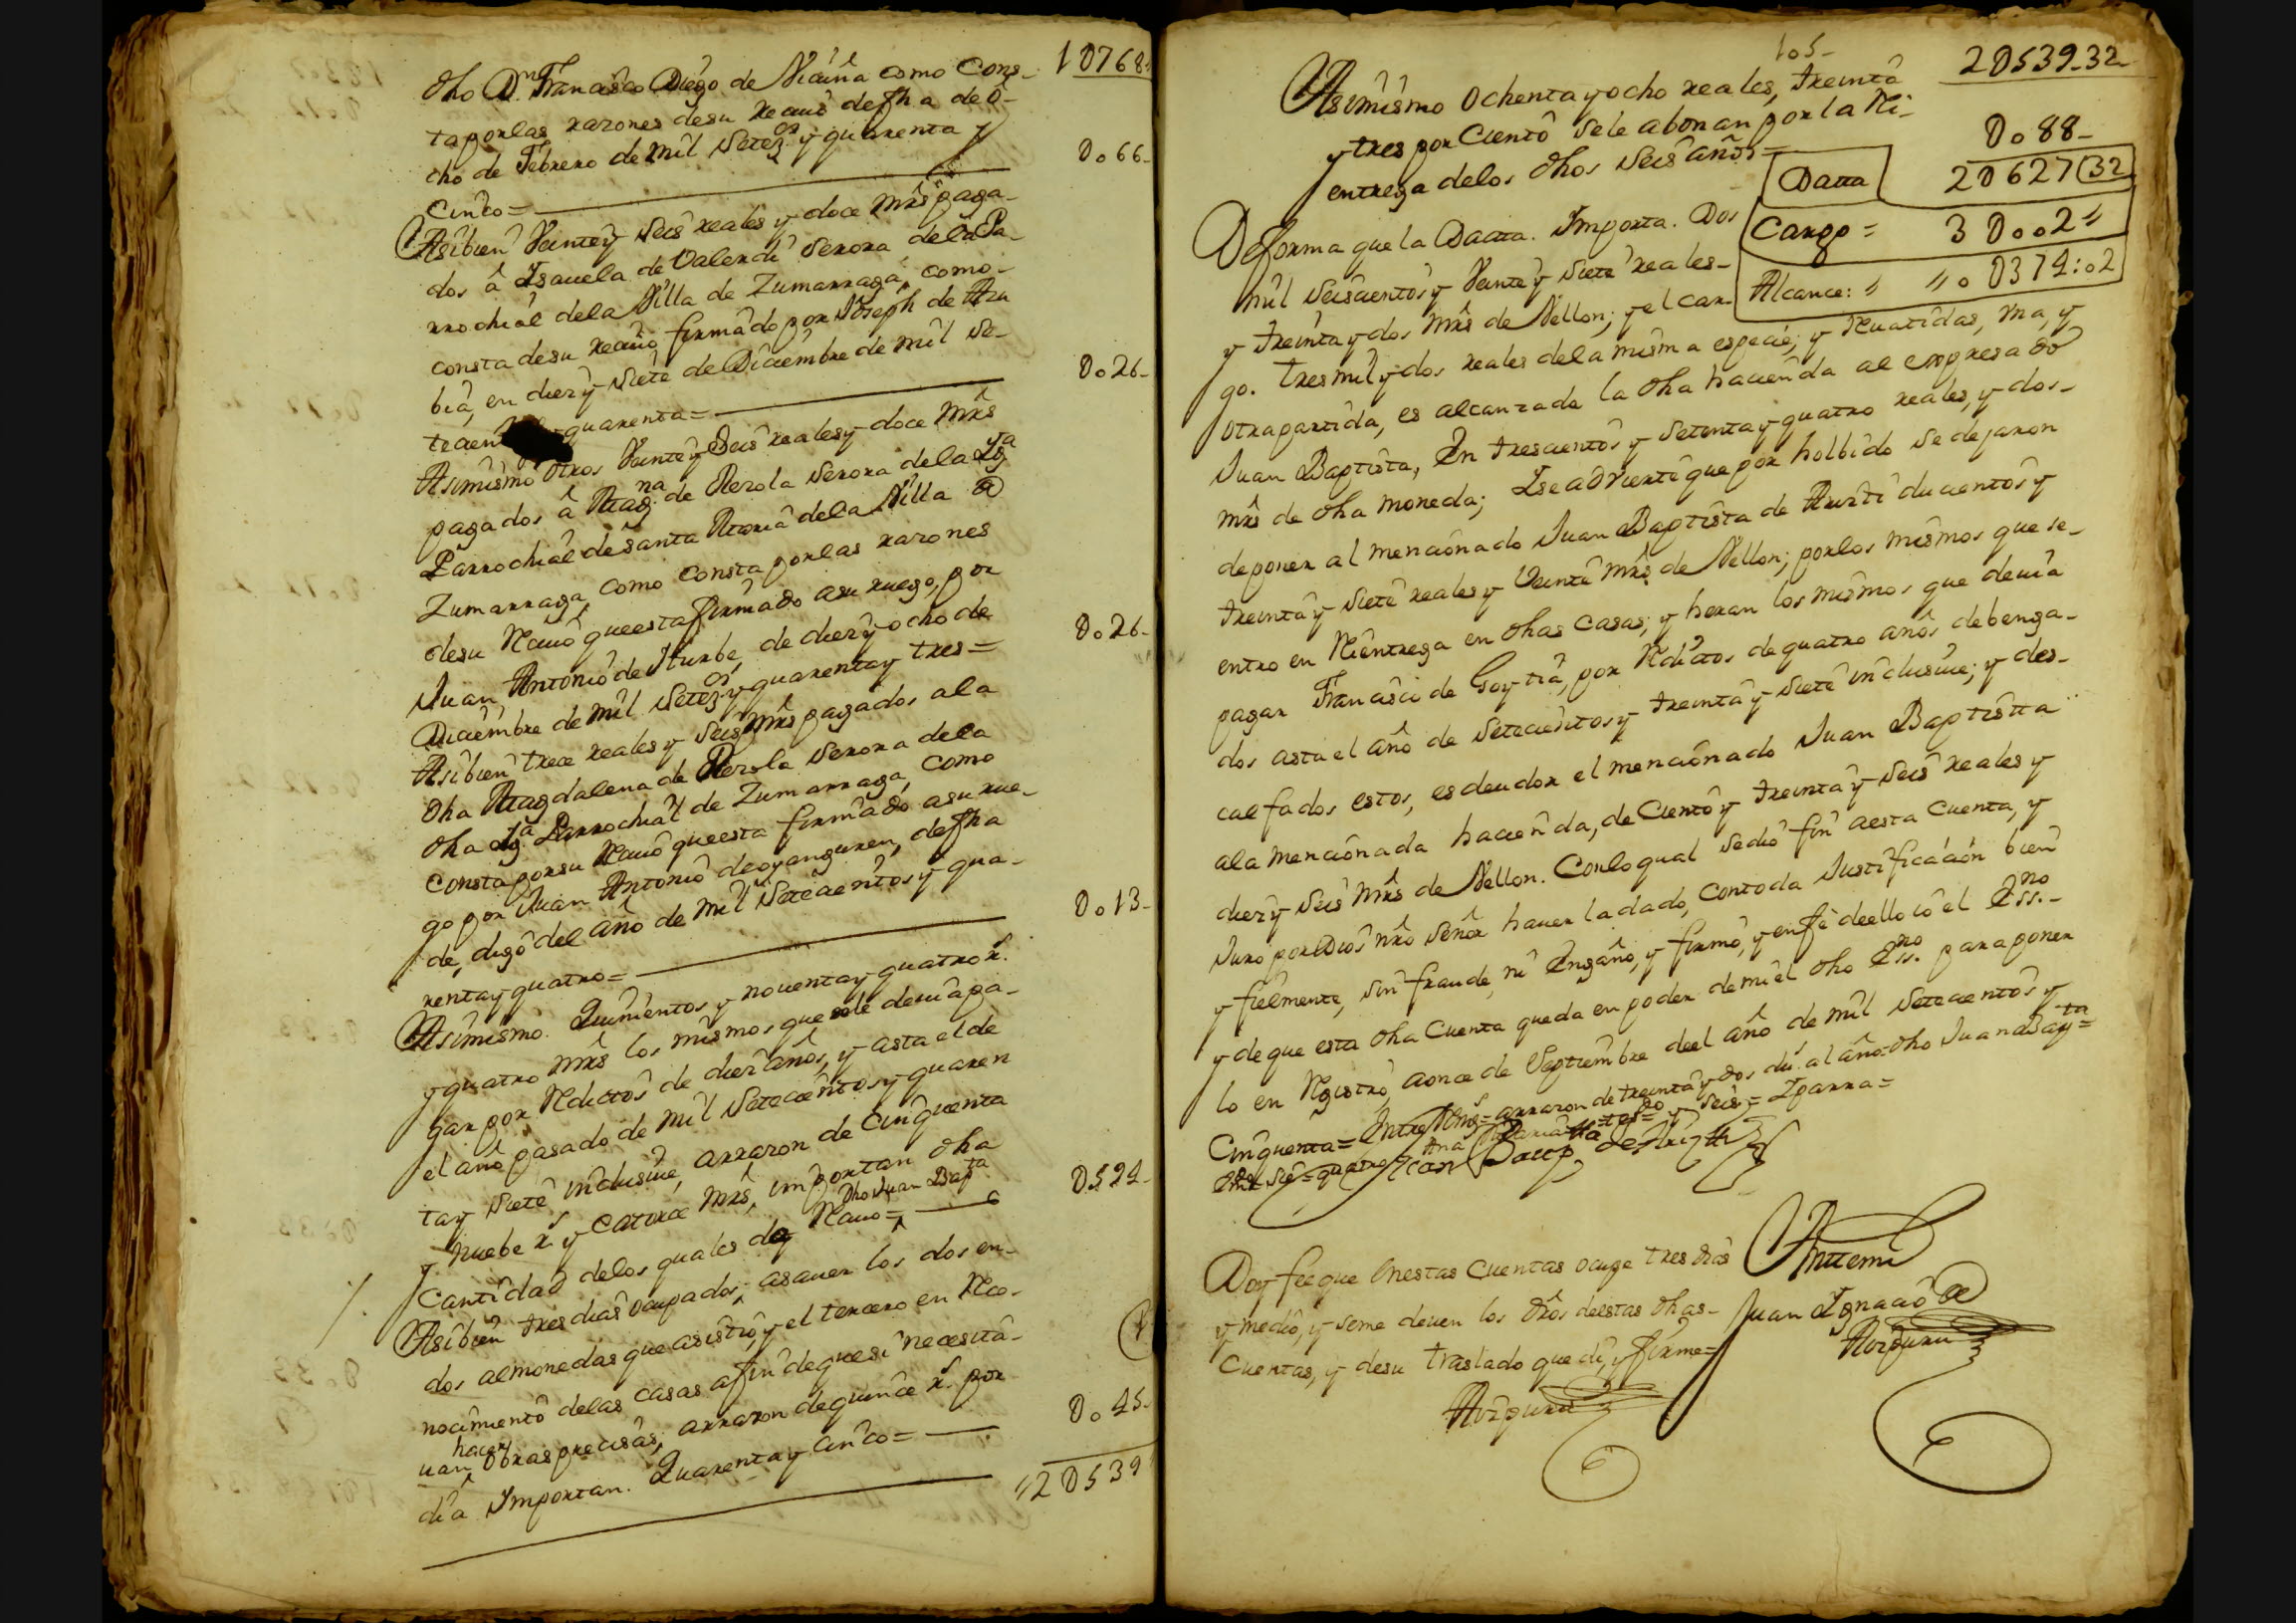 10768
dho Dn. Francisco Diego de Vicuña como Cons-
ta por las razones de su reciuo de fha de o-
cho de Febrero de mil Setezos y quarenta y
Cinco=
Do66-
Asibien Veinte y Seis reales y doce mrs paga-
dos â Isauela de Valerdi Serora de la Pa-
rrochial de la Villa de Zumarraga, como-
consta de su reciuo firmado por Joseph de Aru
bia, en diez y Siete de Diciembre de mil Se-
quarenta=
Do26-
Asimismo otros Veinte y Seis reales y doce mrs
pagados â Magna de Rezola Serora de la Yga
Parrochial de Santa Maria de la Villa de
Zumarraga, como consta por las razones
de su Reciuo que esta firmado a su ruego, por
Juan Antonio de Iturbe, de diez y ocho de
Diciembre de mil Setezos y quarenta y tres=
Do26-
Asibien trece reales y Seis mrs pagados a la
dha Magdalena de Rezola Serora de la
dha Yga Parrochial de Zumarraga, como
consta por su Reciuo que esta firmado a su rue-
go por Juan Antonio de oyanguren, de fha
de, digo del año de mil Setecientos y qua-
renta y quatro=
Do13-
Asimismo. Quinientos y nouenta y quatro rs.
y quatro mrs los mismos que se le deuia pa-
gar por Reditos de diez años, y asta el de
el año pasado de mil Setecientos y quaren
ta y Siete inclusiue, arrazon de Cinquenta
y nuebe rs y Catorce mrs, importan dha
dho Juan Bapta
Cantidad de los quales doy Reciuo=
D594-
Asibien tres dias ocupados, asauer los dos en-
dos almonedas que asistio, y el tercero en Reco-
nocimiento de las casas a fin de que si necesita-
hacer
uan, obras precisas, arrazon de quince rs. por
dia Importan. Quarenta y Cinco=
Do45-
2D539
105-
2D539-32
Asimismo ochenta y ocho reales, treinta
y tres por Ciento Se le abonan por la Ri-
entrega de los dhos Seis años=
Do88-
Datta 2D627 32
Cargo= 3Doo2
Alcance: D374:02
De forma que la Datta. Importa. Dos
mil Seiscientos y Veinte y Siete reales-
y treinta y dos mrs de Vellon; y el car-
go. tres mil y dos reales de la misma especie; y Reuatidas, ma, y
otra partida, es alcanzada la dha hacienda al expresado
Juan Baptista, En trescientos y Setenta y quatro reales, y dos-
mrs de dha moneda; Y se advierte que por holbido se dejaron
de poner al mencionado Juan Baptista de Auriti ducientos y
treinta y Siete reales y Veinte mrs de Vellon; por los mismos que se-
entro en Rientrega en dhas Casas; y heran los mismos que deuia
pagar Francisco de Goytia, por Reditos de quatro años debenga-
dos asta el año de Setecientos y treinta y Siete inclusiue; y des-
calfados estos, es deudor el mencionado Juan Baptistta
a la mencionada hacienda, de Ciento y treinta y Seis reales y
diez y Seis mrs de Vellon. Con lo qual Se dio fin a esta Cuenta, y
Juro por Dios nro Señor hauer la dado, con toda Justificacion bien
y fielmente, sin fraude, ni Engaño, y firmo, y en fe de ello io el Essno.-
y de que esta dha Cuenta queda en poder de mi el dho Essno. para poner
lo en Registro, a once de Septiembre deel año de mil Setecientos y
Cinquenta= arrazon de treinta y dos al año= dho Juan Bapta=
quatro y Seis= Yparra=
Doy fee que Enestas Cuentas ocupe tres dias
y medio, y Se me deuen los dros de estas dhas-
Cuentas, y de su traslado que di, y firme=
Anttemi
Juan Ignacio de
Aizpuru
Aizpuru